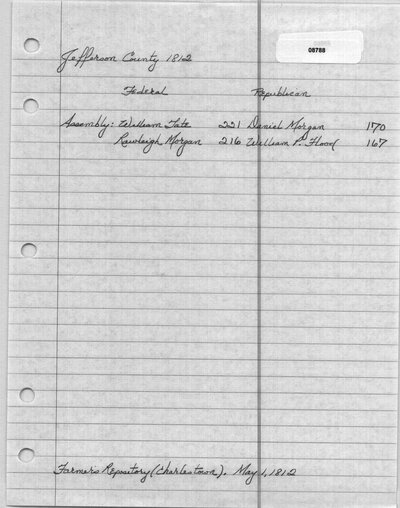 08788
Jefferson County 1812
Federal Republican
Assembly: William Tate 221 Daniel Morgan 170
Rawleigh Morgan 216 William P. Flood 167
Farmers Repository (Charlestown). May 1, 1812